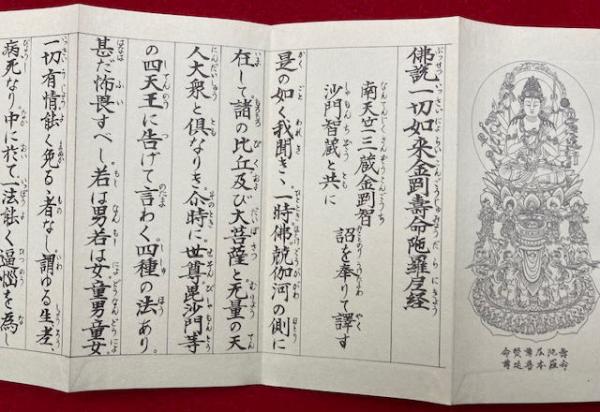 壽命
陀羅
尼本
尊普
賢延
命尊
佛説一切如来金剛壽命陀羅尼経
南天竺三蔵金剛智
沙門智蔵と共に 詔を奉りて譯す
是の如く我聞き、一時佛殑伽河の側に
在して諸の比丘及び大菩薩と无量の天
人大衆と倶なりき。尒時に世尊毘沙門等
の四天王に告げて言わく四種の法あり。
甚だ怖畏すべし。若は男若は女、童男童女、
一切有情能く免るゝ者なし謂ゆる生老
病死なり中に於て一法能く逼悩を為し